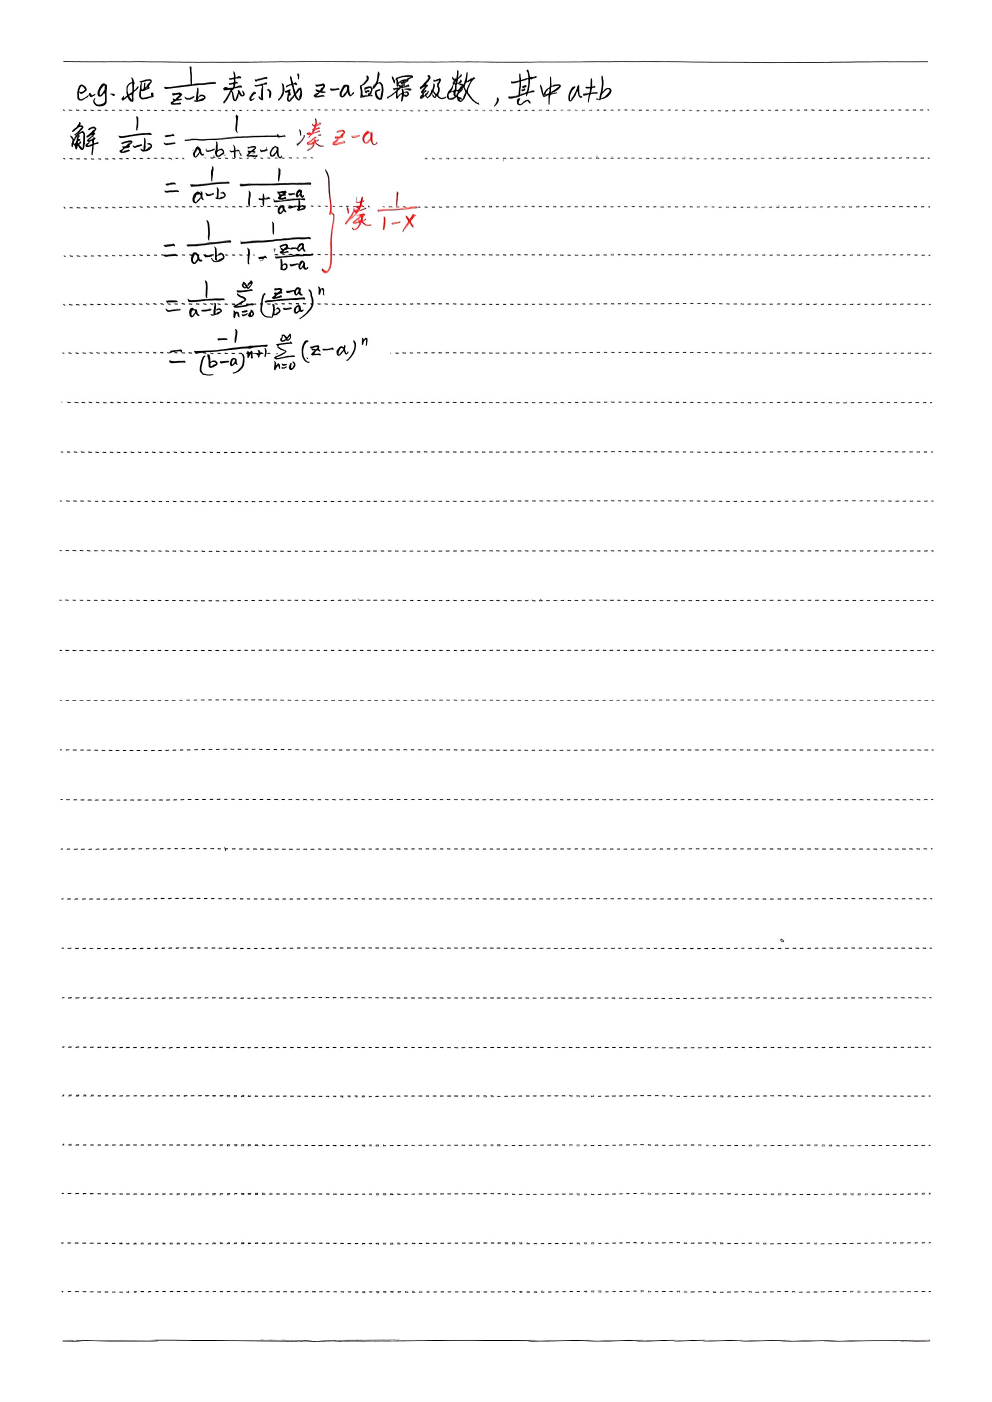 e.g. 把 \frac{1}{z-b} 表示成 z-a 的幂级数, 其中 a≠b
解 \frac{1}{z-b} = \frac{1}{a-b+z-a} 凑 z-a
= \frac{1}{a-b} \frac{1}{1+\frac{z-a}{a-b}}
= \frac{1}{a-b} \frac{1}{1-\frac{z-a}{b-a}} } 凑 \frac{1}{1-x}
= \frac{1}{a-b} \sum_{n=0}^{∞} (\frac{z-a}{b-a})^n
= \frac{-1}{(b-a)^{n+1}} \sum_{n=0}^{∞} (z-a)^n